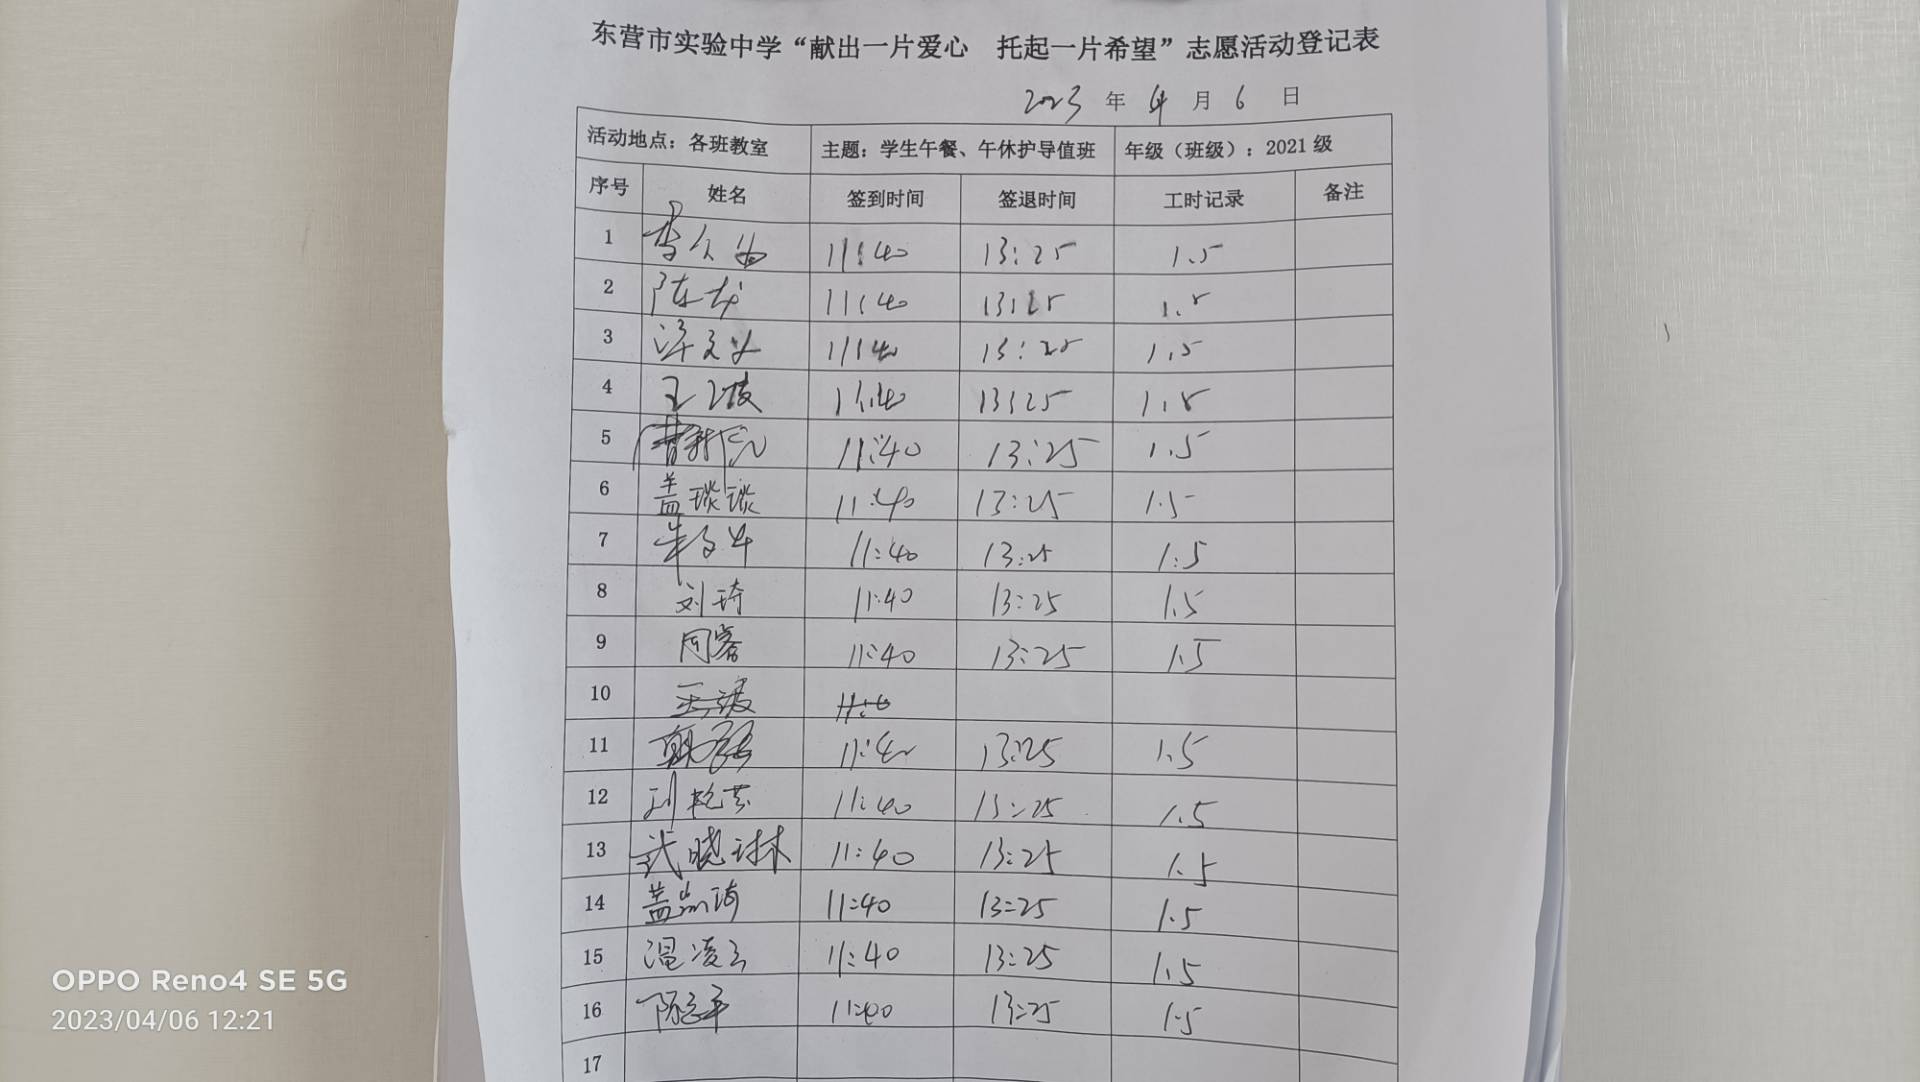 东营市实验中学“献出一片爱心 托起一片希望”志愿活动登记表
2023 年 4 月 6 日
活动地点：各班教室 主题：学生午餐、午休护导值班 年级（班级）：2021 级
序号 姓名 签到时间 签退时间 工时记录 备注
1 11:40 13:25 1.5
2 陈龙 11:40 13:25 1.5
3 11:40 13:25 1.5
4 王 11:40 13:25 1.5
5 曹新 11:40 13:25 1.5
6 盖琰琰 11:40 13:25 1.5
7 朱文军 11:40 13:25 1.5
8 刘琦 11:40 13:25 1.5
9 周睿 11:40 13:25 1.5
10
11 11:40 13:25 1.5
12 刘艳芸 11:40 13:25 1.5
13 武晓琳 11:40 13:25 1.5
14 盖 琦 11:40 13:25 1.5
15 温凌云 11:40 13:25 1.5
16 陈 平 11:40 13:25 1.5
17
OPPO Reno4 SE 5G
2023/04/06 12:21